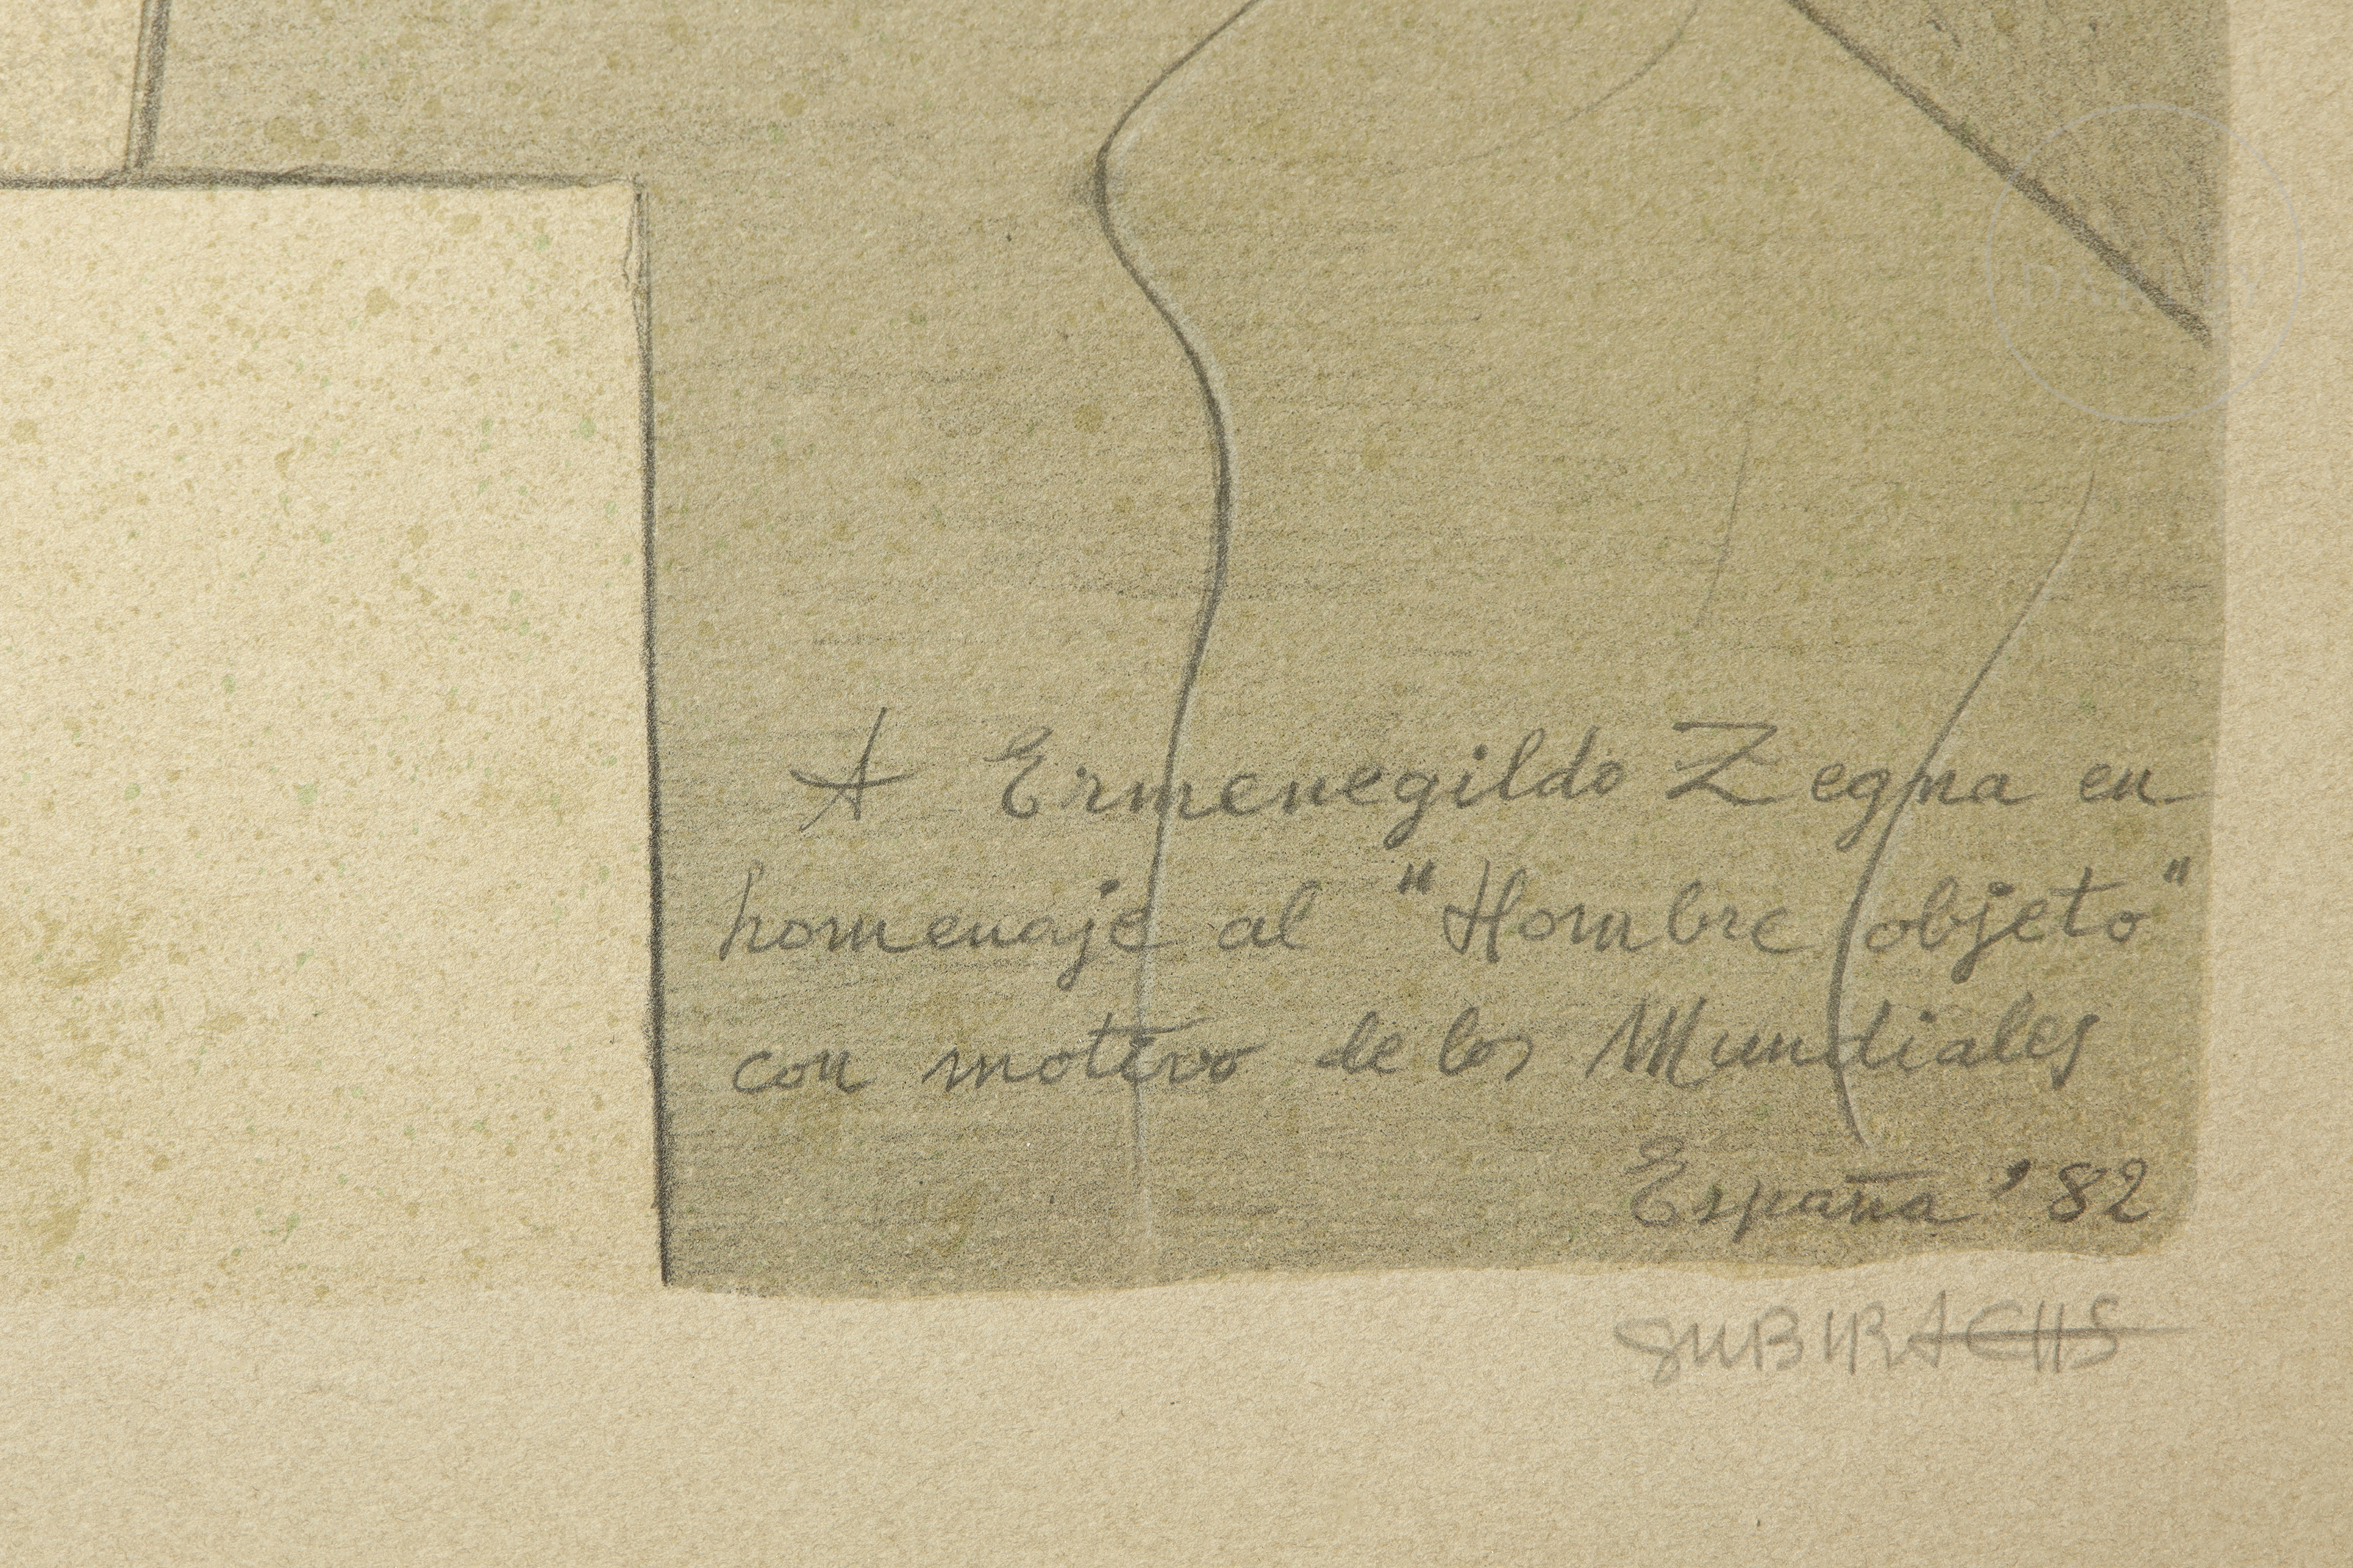 A Ermenegildo Zegna en
homenaje al "Hombre objeto"
con motivo de los Mundiales
España '82
SUBIRACHS